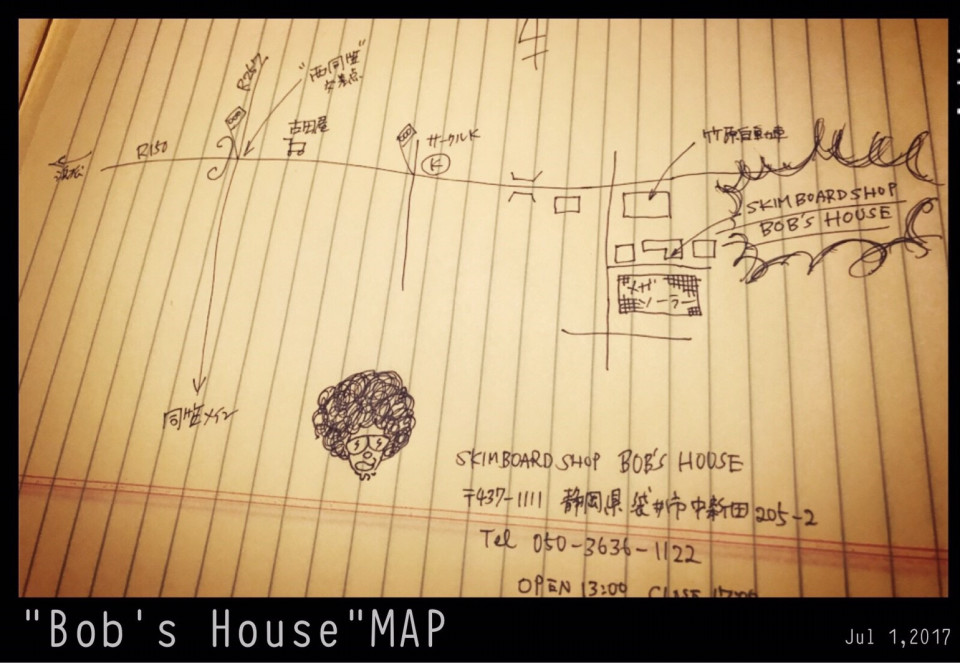 R262
"西同笠"
交差点
古田屋
サークルK
K
竹原自動車
R150
浜松
SKIMBOARD SHOP
BOB'S HOUSE
メガ
ソーラー
同笠メイン
SKIMBOARD SHOP BOB'S HOUSE
〒437-1111 静岡県袋井市中新田205-2
Tel 050-3636-1122
OPEN 13:00 CLOSE 17:00
"Bob's House"MAP
Jul 1,2017